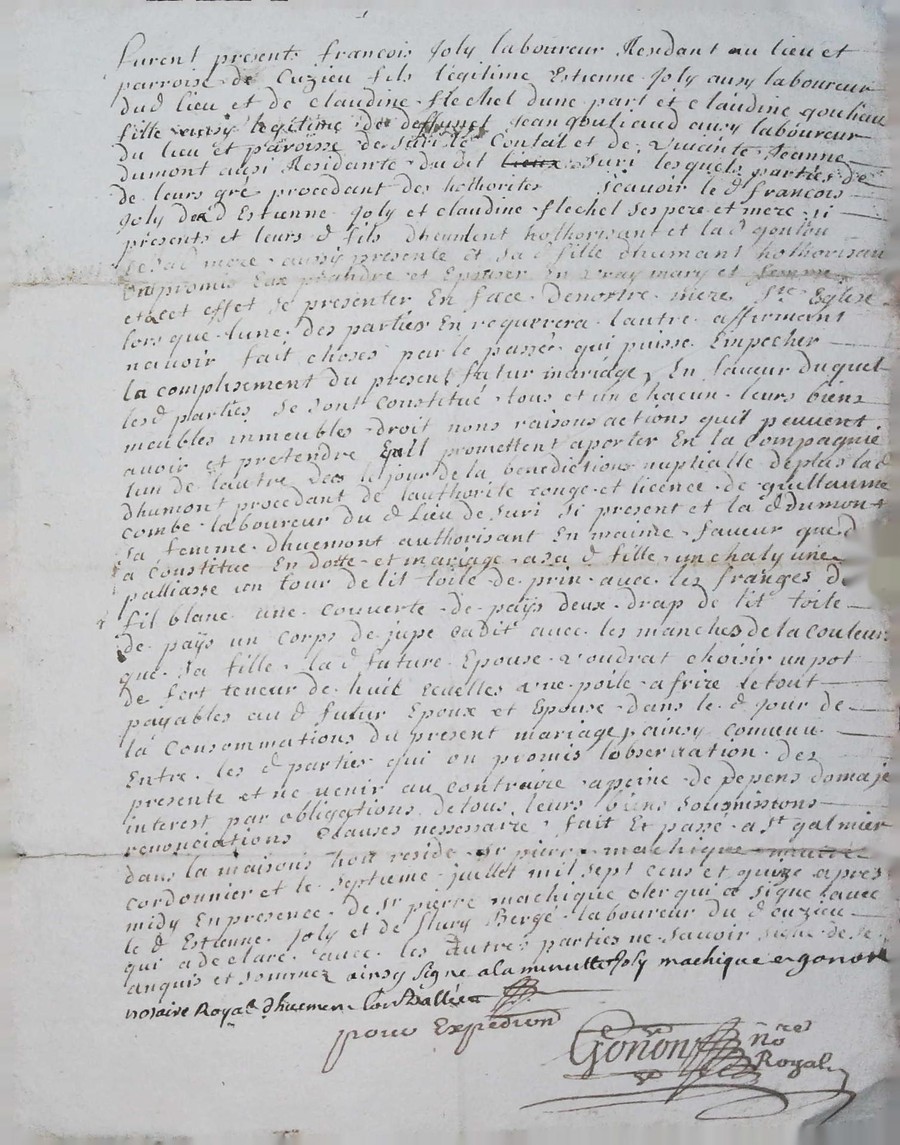 furent présents francois Joly laboureur Residant au lieu et
parroise de Cuzieu fils légitime Estienne Joly aussy laboureur
dud lieu et de claudine flechel dune part et claudine gouliau
fille aussy legitime de deffunct Jean gouliaud aussy laboureur
du lieu et paroisse de Suri le Contal et de vivante Jeanne
dumont aussi Residante dudit Suri lesquels parties de
de leurs gré procedant des hothorites scavoir le d francois
Joly de d Estienne Joly et claudine flechel ses pere et mere si
présents et leurs d fils dheument hothorisant et la d gouliau
de sad mere aussy présente et sa d fille dhumant hothorisan
onpromis Eux prandre et Epouser En vray mary et femme
et acet effet se presenter En face denortre mere Ste Eglise
lors que lune des parties En requerrera lautre affirmant
navoir fait choses par le passer qui puisse Empecher
la complisement du present futur mariage En faveur duquel
les d parties se sont constitué tous et un chacun leurs biens
meubles inmeubles droit noms raisons actions quil peuvent
avoir et pretendre promettent aporter En la compagnie
lun de lautre des le jour de la benedictions nuptialle deplus la d
dhumont procedant de lauthorite conge et licence de guillaume
combe laboureur du d lieu de Suri si present et la d dumont
sa femme dhuemont authorisant En mainme faveur que d
a constitue En dotte et mariage asa d fille un chaly une
palliasse un tour de lit toile de prin avec les franges de
fil blanc une couverte de païs deux drap de lit toile
de païs un corps de jupe cadit avec les manches de la couleur
que sa fille la d future Epouse voudrat choisir un pot
de fert teneur de huit ecuelles une poile afrire le tout
payables au d futur Epoux et Epouse dans le d jour de
la consommations du present mariage ainsy convenu
Entre les d parties qui on promis lobservation des
presente et ne venir au contraire apeine de depens domaje
interest par obligations de tous leurs biens soumissions
renonciations clauses nessessaire fait Et passé a St galmier
dans la maisons hou reside Sr pierre machique
cordonnier et le septieme juillet mil sept cens et quize apres
midy En presence de Sr pierre machique cler qui a signe avec
le d Estienne Joly et de flury Bergé laboureur du d cuzieu
qui a declaré avec les autres parties ne savoir signe de ce
anquis et sommez ainsy signe a la minutte Joly machique et gonon
nosaire Royal dhuement
pour Expedion
Gonon nore
Royal